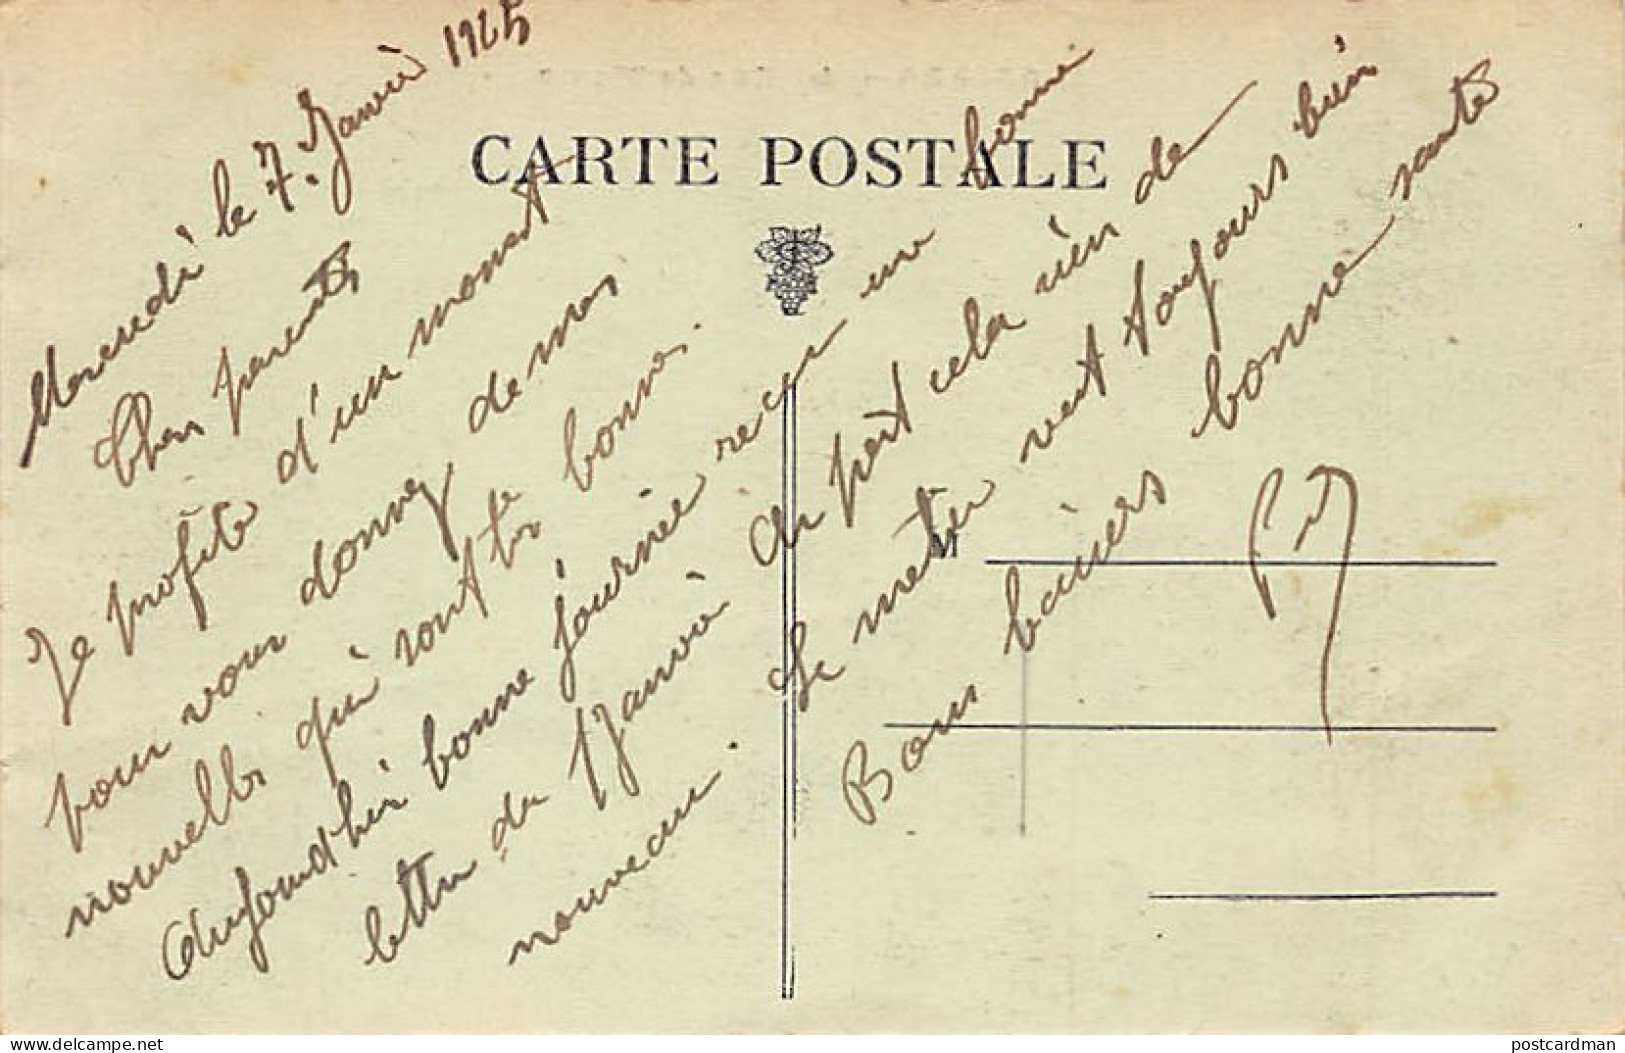 Mercredi le 7. Janvier 1925
CARTE POSTALE
Chers parents
Je profite d'un moment
pour vous donner de mes
nouvelles qui sont très bonnes.
Aujourd'hui bonne journée reçu une bonne
lettre du 1 Janvier à part cela rien de
nouveau. Le métier vest toujours bien
Bons baisers bonne santé
M
www.delcampe.net
postcardman